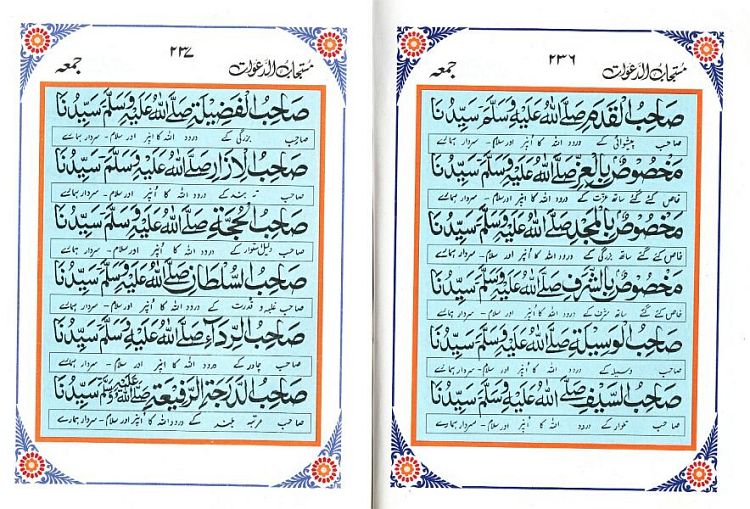 مستجاب الدعوات ۲۳۶ جمعہ
صَاحِبُ الْقَدَمِ صَلَّى اللهُ عَلَيْهِ وَسَلَّمَ سَيِّدُنَا
صاحب پیشوائی کے درود اللہ کا اُنپر اور سلام - سردار ہمارے
مَخْصُوصٌ بِالْعِزِّ صَلَّى اللهُ عَلَيْهِ وَسَلَّمَ سَيِّدُنَا
خاص کئے گئے ساتھ عزت کے درود اللہ کا اُنپر اور سلام - سردار ہمارے
مَخْصُوصٌ بِالْمَجْدِ صَلَّى اللهُ عَلَيْهِ وَسَلَّمَ سَيِّدُنَا
خاص کئے گئے ساتھ بزرگی کے درود اللہ کا اُنپر اور سلام - سردار ہمارے
مَخْصُوصٌ بِالشَّرَفِ صَلَّى اللهُ عَلَيْهِ وَسَلَّمَ سَيِّدُنَا
خاص کئے گئے ساتھ شرف کے درود اللہ کا اُنپر اور سلام - سردار ہمارے
صَاحِبُ الْوَسِيلَةِ صَلَّى اللهُ عَلَيْهِ وَسَلَّمَ سَيِّدُنَا
صاحب وسیلہ کے درود اللہ کا اُنپر اور سلام - سردار ہمارے
صَاحِبُ السَّيْفِ صَلَّى اللهُ عَلَيْهِ وَسَلَّمَ سَيِّدُنَا
صاحب تلوار کے درود اللہ کا اُنپر اور سلام - سردار ہمارے
مستجاب الدعوات ۲۳۷ جمعہ
صَاحِبُ الْفَضِيلَةِ صَلَّى اللهُ عَلَيْهِ وَسَلَّمَ سَيِّدُنَا
صاحب بزرگی کے درود اللہ کا اُنپر اور سلام - سردار ہمارے
صَاحِبُ الْاِزَارِ صَلَّى اللهُ عَلَيْهِ وَسَلَّمَ سَيِّدُنَا
صاحب تہ بند کے درود اللہ کا اُنپر اور سلام - سردار ہمارے
صَاحِبُ الْحُجَّةِ صَلَّى اللهُ عَلَيْهِ وَسَلَّمَ سَيِّدُنَا
صاحب دلیل استوار کے درود اللہ کا اُنپر اور سلام - سردار ہمارے
صَاحِبُ السُّلْطَانِ صَلَّى اللهُ عَلَيْهِ وَسَلَّمَ سَيِّدُنَا
صاحب غلبہ و قدرت کے درود اللہ کا اُنپر اور سلام - سردار ہمارے
صَاحِبُ الرِّدَآءِ صَلَّى اللهُ عَلَيْهِ وَسَلَّمَ سَيِّدُنَا
صاحب چادر کے درود اللہ کا اُنپر اور سلام - سردار ہمارے
صَاحِبُ الدَّرَجَةِ الرَّفِيعَةِ صَلَّى اللهُ عَلَيْهِ وَسَلَّمَ سَيِّدُنَا
صاحب مرتبہ بلند کے درود اللہ کا اُنپر اور سلام - سردار ہمارے